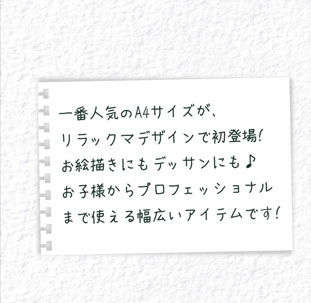 一番人気のA4サイズが、
リラックマデザインで初登場!
お絵描きにもデッサンにも♪
お子様からプロフェッショナル
まで使える幅広いアイテムです!